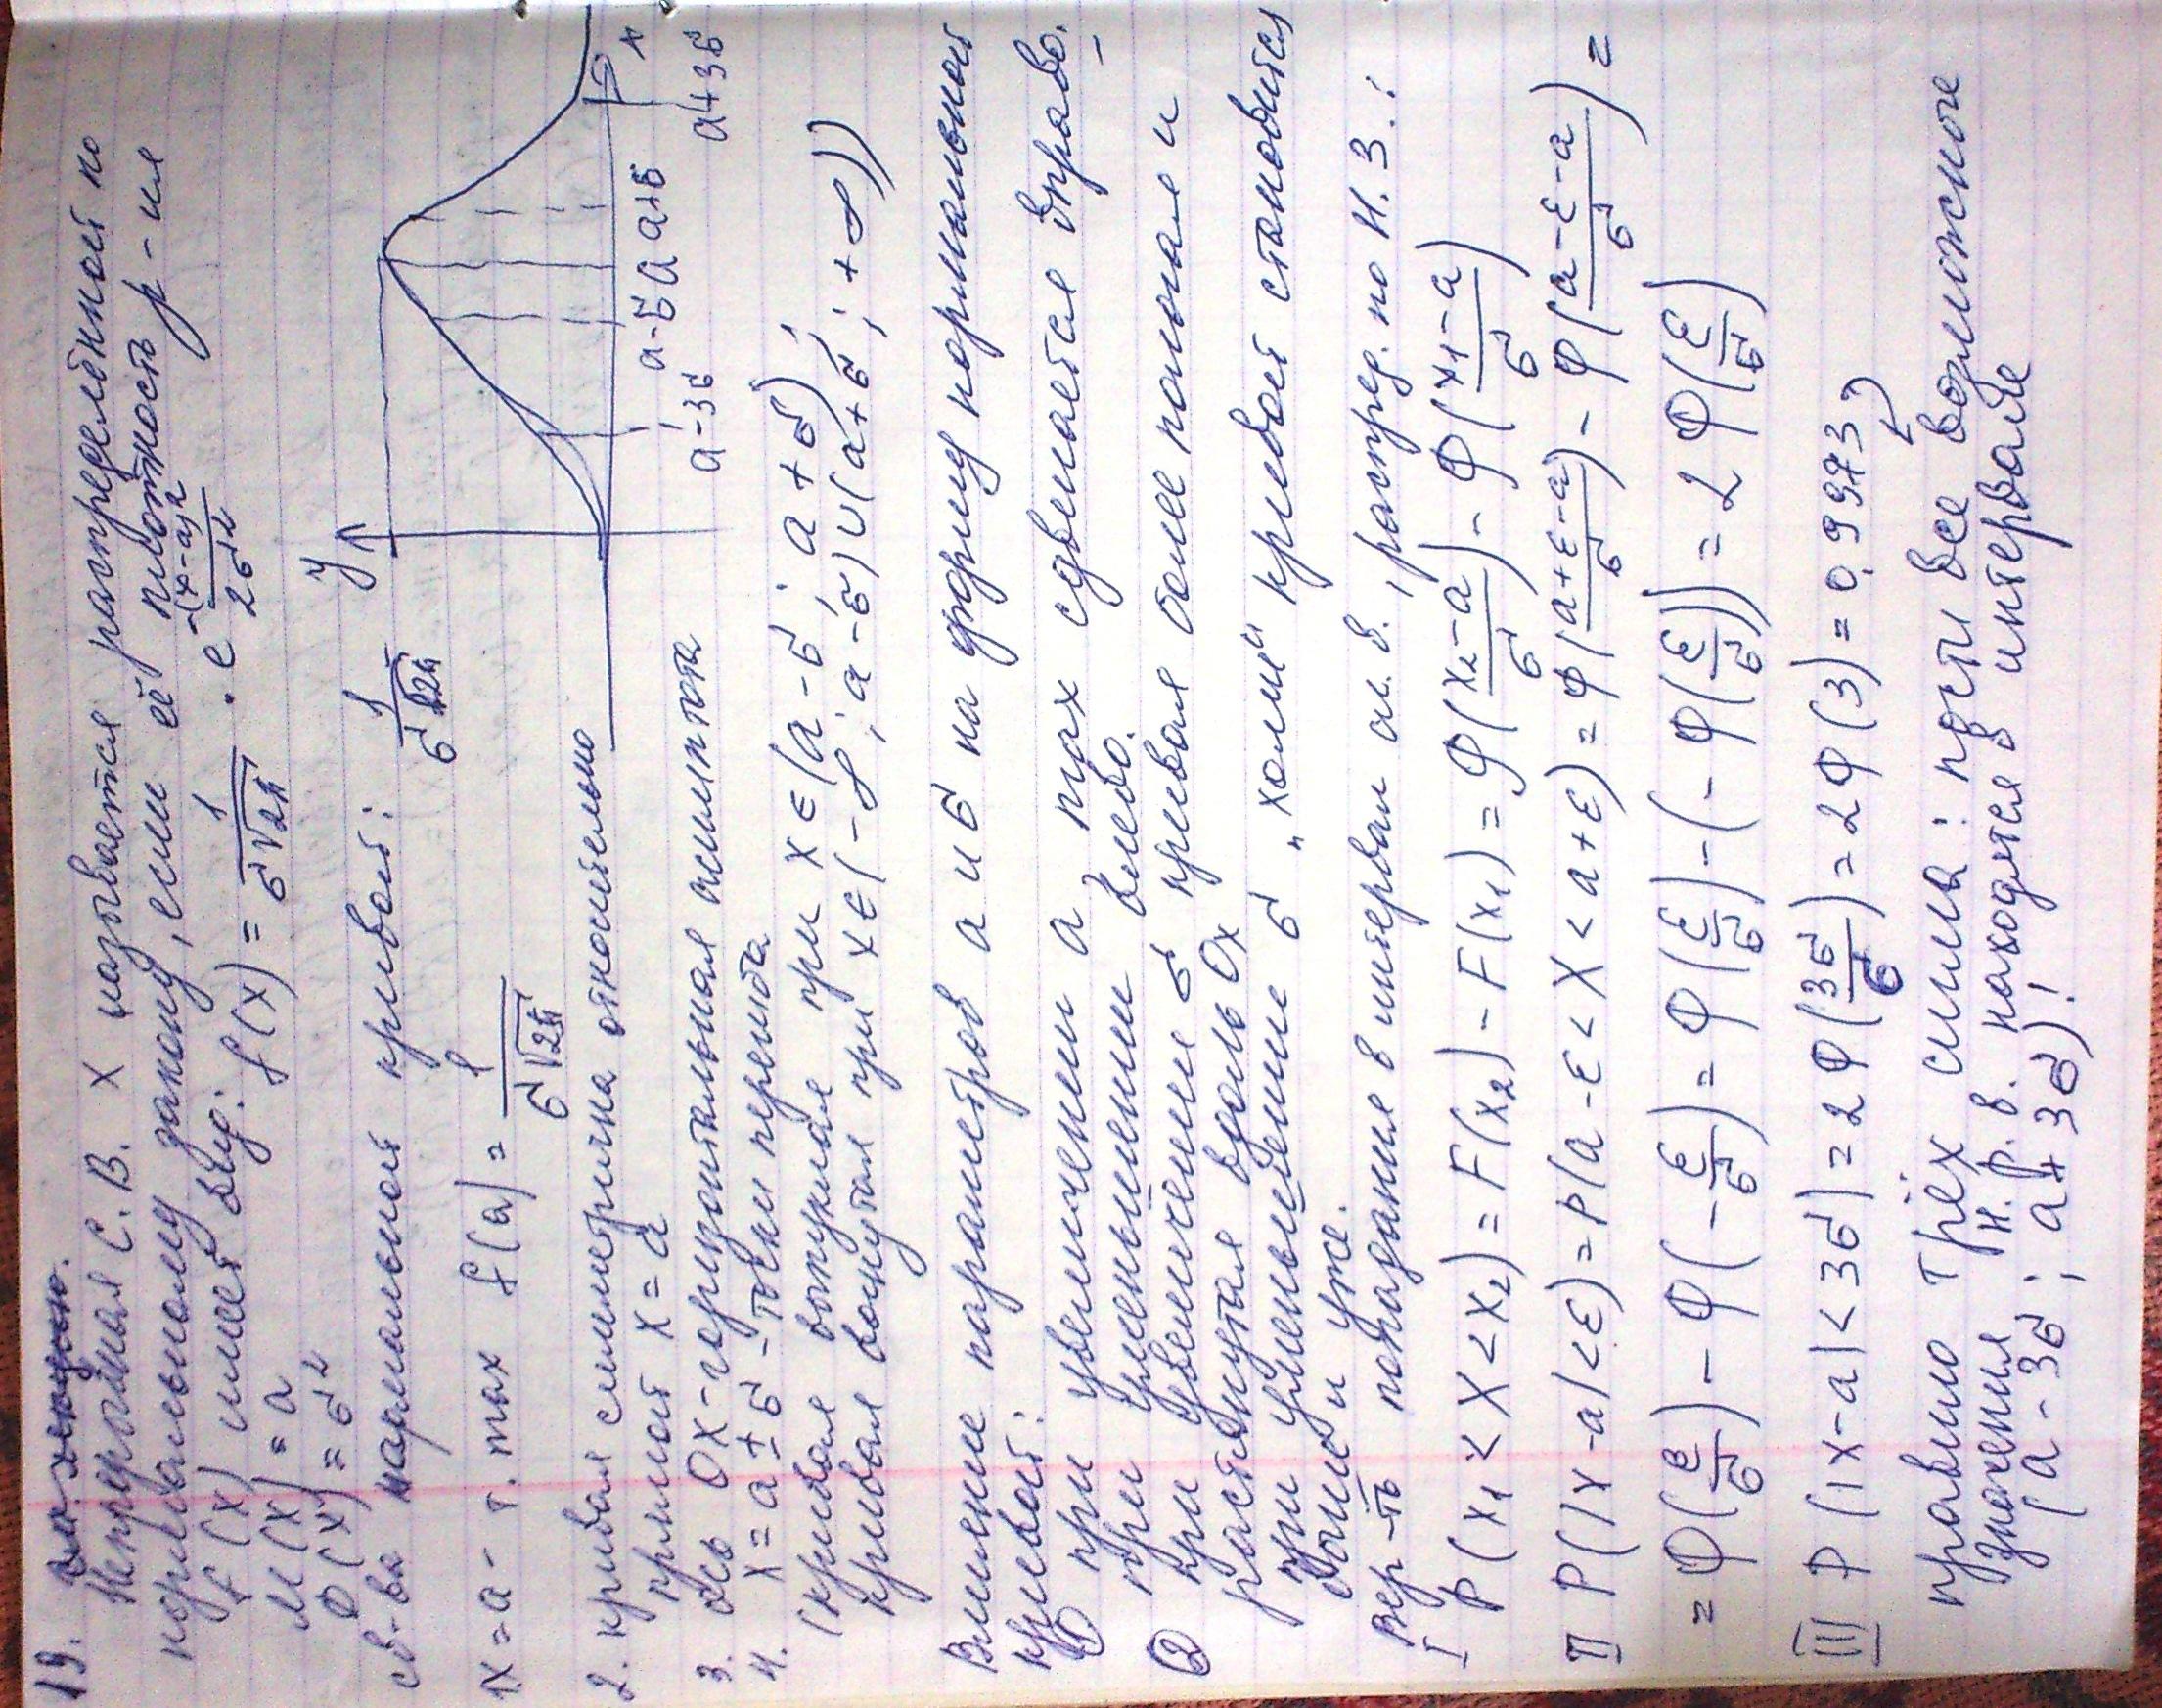 19.
Непрерывная С.В. X называется распределённой по
нормальному закону, если её плотность р-ия
f(x) имеет вид: f(x) = 1/(σ√2π) · e^(-(x-a)²/2σ²)
M(X) = a
D(X) = σ²
св-ва нормальной кривой:
1 x = a - т. max f(a) = 1/(σ√2π)
y 1/(σ√2π)
a-3σ a-σ a a+σ a+3σ x
2. кривая симметрична относительно
прямой x = a
3. ось Ox - горизонтальная асимптота
4. x = a ± σ - точки перегиба
(кривая выпуклая при x ∈ (a-σ; a+σ);
кривая вогнутая при x ∈ (-∞; a-σ) ∪ (a+σ; +∞))
Влияние параметров a и σ на форму нормальной
кривой:
① при увеличении a max сдвигается вправо.
при уменьшении влево.
② при увеличении σ кривая более пологая и
растянутая вдоль Ox
при уменьшение σ „холм" кривой становится
выше и уже.
Вер-ть попадания в интервал сл.в., распред. по Н.З.:
I P(x₁ < X < x₂) = F(x₂) - F(x₁) = Φ((x₂-a)/σ) - Φ((x₁-a)/σ)
II P(|X-a| < ε) = P(a-ε < X < a+ε) = Φ((a+ε-a)/σ) - Φ((a-ε-a)/σ) =
= Φ(ε/σ) - Φ(-ε/σ) = Φ(ε/σ) - (-Φ(ε/σ))) = 2Φ(ε/σ)
III P(|X-a| < 3σ) = 2Φ(3σ/σ) = 2Φ(3) = 0.9973
правило трёх сигма: почти все возможное
значения н.р.в. находятся в интервале
(a-3σ; a+3σ)!